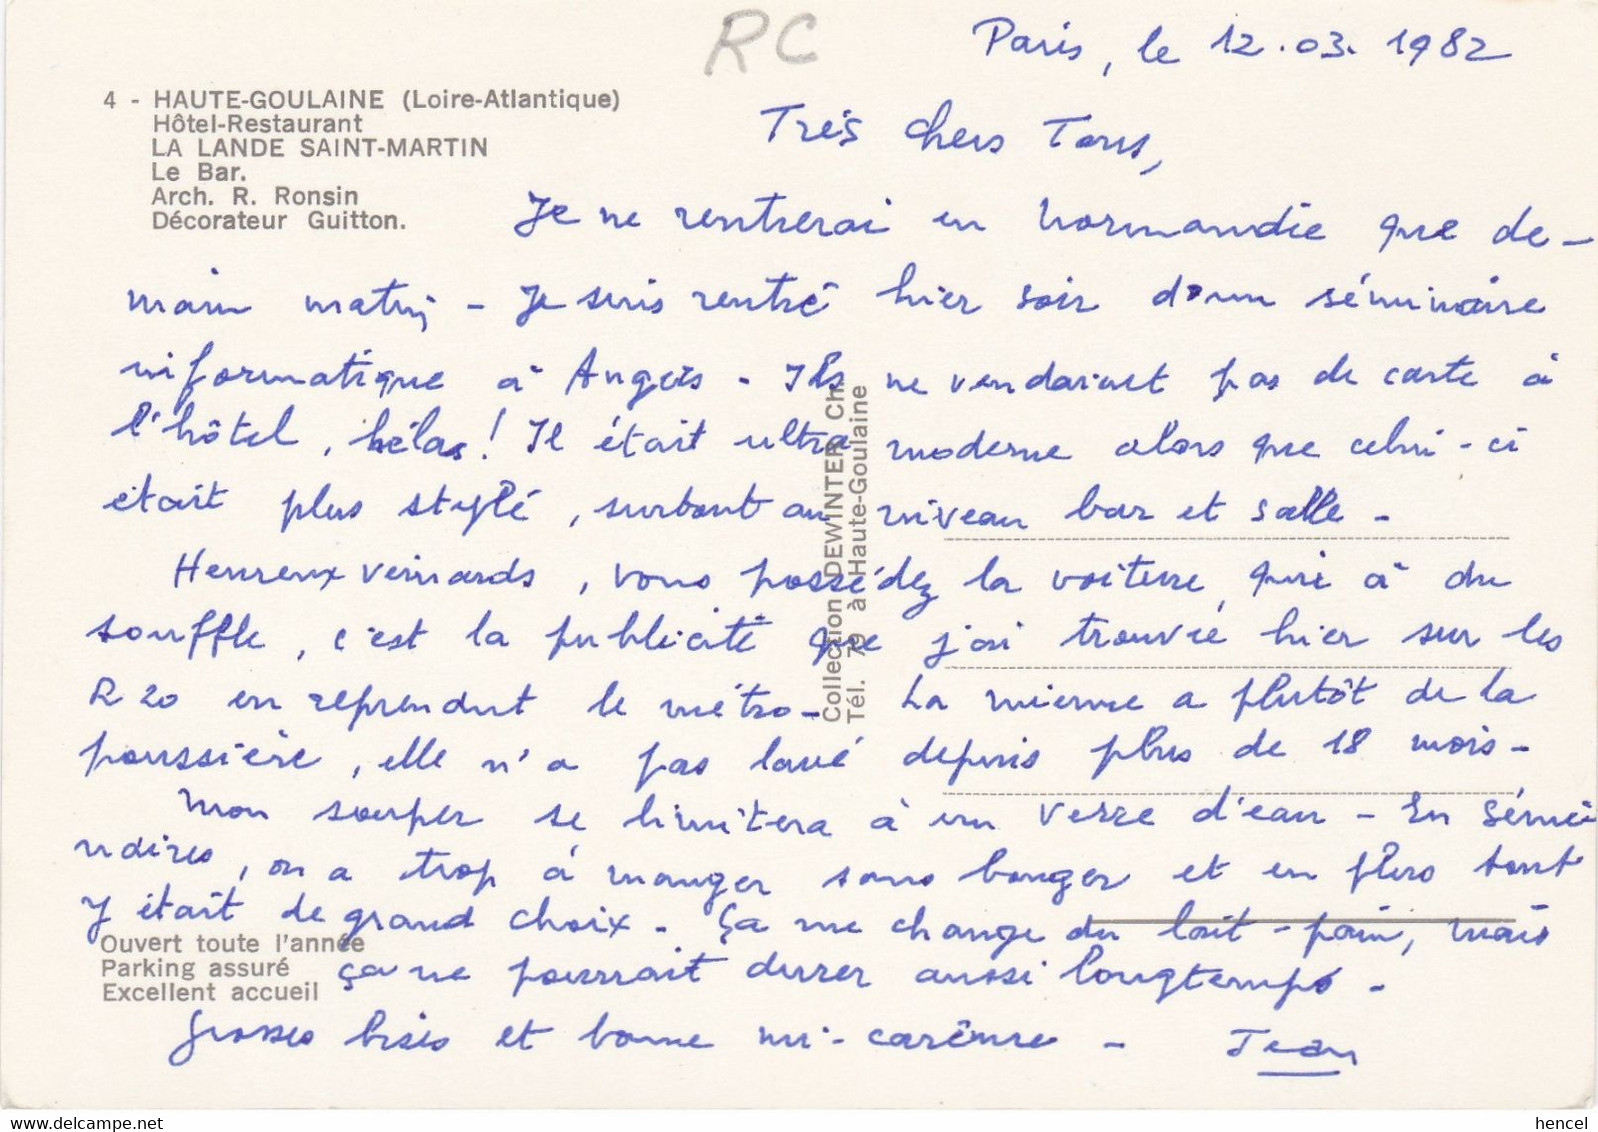 RC
Paris, le 12.03.1982
4 - HAUTE-GOULAINE (Loire-Atlantique)
Hôtel-Restaurant
LA LANDE SAINT-MARTIN
Le Bar.
Arch. R. Ronsin
Décorateur Guitton.
Très chers Tous,
Je ne rentrerai en Normandie que de-
main matin - Je suis rentré hier soir d'un séminaire
informatique à Angers - Ils ne vendaient pas de carte à
l'hôtel, hélas! Il était ultra moderne alors que celui-ci
était plus stylé, surtout au niveau bar et salle -
Heureux veinards, vous possédez la voiture qui a du
souffle, c'est la publicité que j'ai trouvée hier sur les
R20 en reprenant le métro - La mienne a plutôt de la
poussière, elle n'a pas lavé depuis plus de 18 mois -
Mon souper se limitera à un verre d'eau - En sémi
naires, on a trop à manger sans bouger et en plus tout
y était de grand choix - Ça me change du lait-pain, mais
ça ne pourrait durer aussi longtemps -
Grosses bises et bonne mi-carême - Jean
Collection DEWINTER Ch.
Tél. 79 à Haute-Goulaine
Ouvert toute l'année
Parking assuré
Excellent accueil
hencel